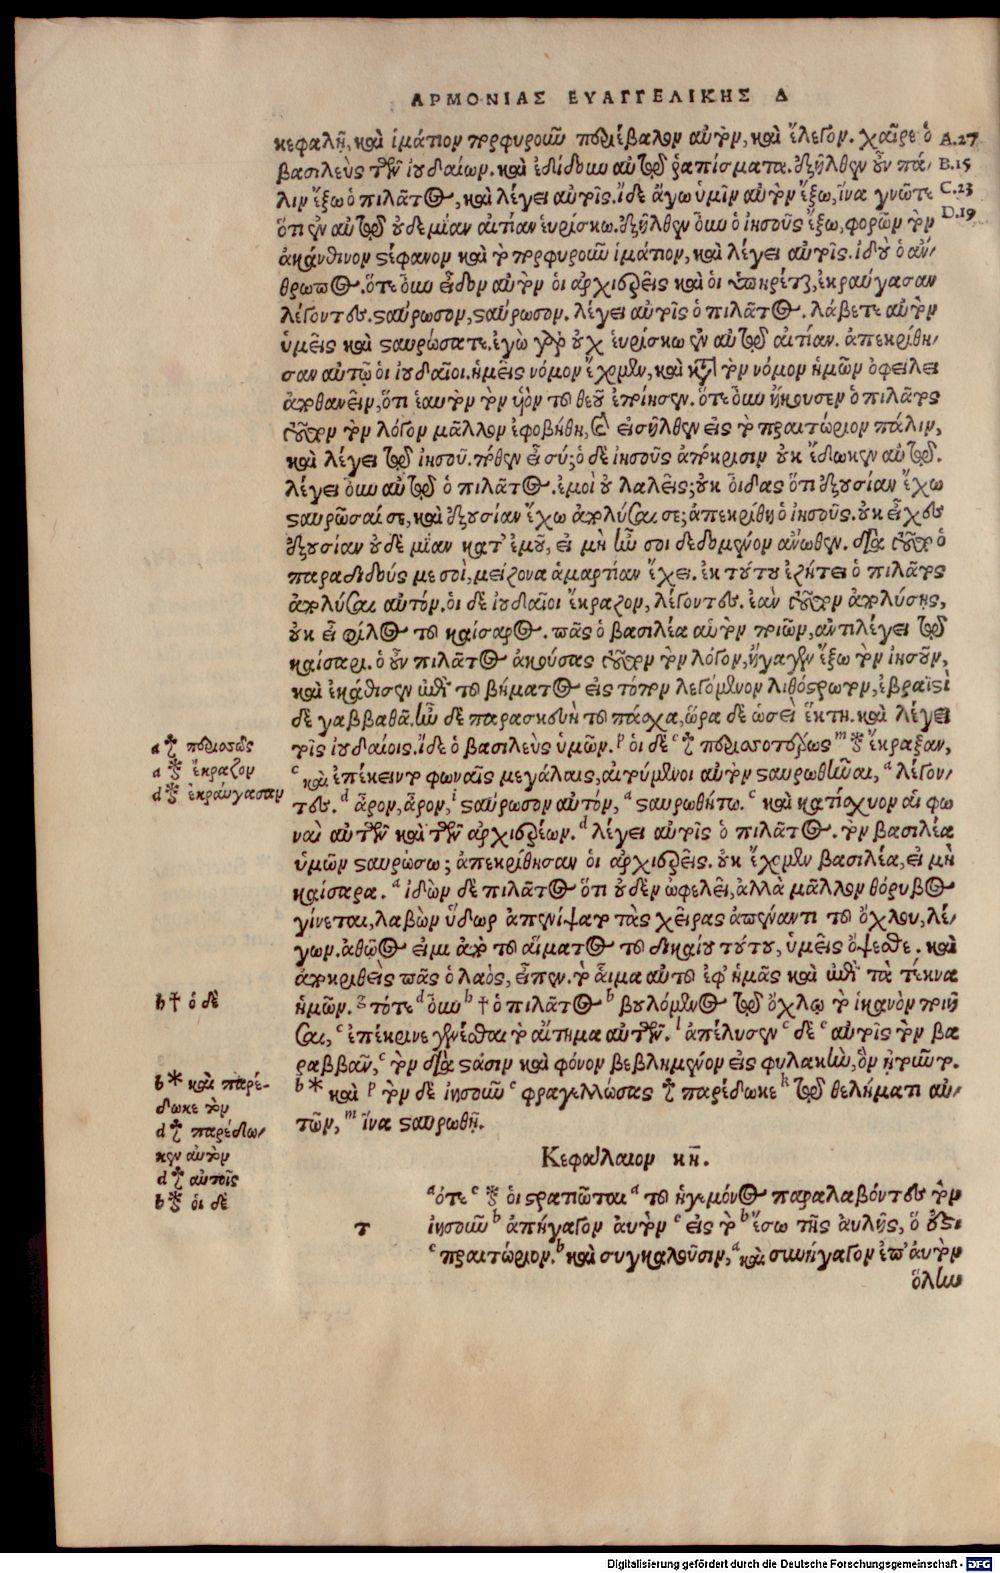 ΑΡΜΟΝΙΑΣ ΕΥΑΓΓΕΛΙΚΗΣ Δ
κεφαλῇ, καὶ ἱμάτιον πορφυροῦν περιέβαλον αὐτὸν, καὶ ἔλεγον. χαῖρε ὁ A.27
βασιλεὺς τῶν ἰουδαίων. καὶ ἐδίδουν αὐτῷ ῥαπίσματα. ἐξῆλθεν οὖν πά- B.15
λιν ἔξω ὁ πιλᾶτος, καὶ λέγει αὐτοῖς. ἴδε ἄγω ὑμῖν αὐτὸν ἔξω, ἵνα γνῶτε C.23
ὅτι ἐν αὐτῷ οὐδεμίαν αἰτίαν εὑρίσκω. ἐξῆλθεν οὖν ὁ ἰησοῦς ἔξω, φορῶν τὸν D.19
ἀκάνθινον στέφανον καὶ τὸ πορφυροῦν ἱμάτιον, καὶ λέγει αὐτοῖς. ἰδοὺ ὁ ἄν-
θρωπος. ὅτε οὖν εἶδον αὐτὸν οἱ ἀρχιερεῖς καὶ οἱ ὑπηρέται, ἐκραύγασαν
λέγοντες. σταύρωσον, σταύρωσον. λέγει αὐτοῖς ὁ πιλᾶτος. λάβετε αὐτὸν
ὑμεῖς καὶ σταυρώσατε. ἐγὼ γὰρ οὐχ εὑρίσκω ἐν αὐτῷ αἰτίαν. ἀπεκρίθη-
σαν αὐτῷ οἱ ἰουδαῖοι. ἡμεῖς νόμον ἔχομεν, καὶ κατὰ τὸν νόμον ἡμῶν ὀφείλει
ἀποθανεῖν, ὅτι ἑαυτὸν τὸν υἱὸν τοῦ θεοῦ ἐποίησεν. ὅτε οὖν ἤκουσεν ὁ πιλᾶτος
τοῦτον τὸν λόγον μᾶλλον ἐφοβήθη, καὶ εἰσῆλθεν εἰς τὸ πραιτώριον πάλιν,
καὶ λέγει τῷ ἰησοῦ. πόθεν εἶ σύ; ὁ δὲ ἰησοῦς ἀπόκρισιν οὐκ ἔδωκεν αὐτῷ.
λέγει οὖν αὐτῷ ὁ πιλᾶτος. ἐμοὶ οὐ λαλεῖς; οὐκ οἶδας ὅτι ἐξουσίαν ἔχω
σταυρῶσαί σε, καὶ ἐξουσίαν ἔχω ἀπολύσαι σε; ἀπεκρίθη ὁ ἰησοῦς. οὐκ εἶχες
ἐξουσίαν οὐδεμίαν κατ' ἐμοῦ, εἰ μὴ ἦν σοι δεδομένον ἄνωθεν. διὰ τοῦτο ὁ
παραδιδούς με σοὶ, μείζονα ἁμαρτίαν ἔχει. ἐκ τούτου ἐζήτει ὁ πιλᾶτος
ἀπολύσαι αὐτόν. οἱ δὲ ἰουδαῖοι ἔκραζον, λέγοντες. ἐὰν τοῦτον ἀπολύσῃς,
οὐκ εἶ φίλος τοῦ καίσαρος. πᾶς ὁ βασιλέα αὑτὸν ποιῶν, ἀντιλέγει τῷ
καίσαρι. ὁ οὖν πιλᾶτος ἀκούσας τοῦτον τὸν λόγον, ἤγαγεν ἔξω τὸν ἰησοῦν,
καὶ ἐκάθισεν ἐπὶ τοῦ βήματος εἰς τόπον λεγόμενον λιθόστρωτον, ἑβραϊστὶ
δὲ γαββαθᾶ. ἦν δὲ παρασκευὴ τοῦ πάσχα, ὥρα δὲ ὡσεὶ ἕκτη. καὶ λέγει
τοῖς ἰουδαίοις. ἴδε ὁ βασιλεὺς ὑμῶν. p οἱ δὲ c ⚳ περισσοτέρως m ⁕ ἔκραξαν,
c καὶ ἐπέκειντο φωναῖς μεγάλαις, αἰτούμενοι αὐτὸν σταυρωθῆναι, a λέγον-
τες. d ἆρον, ἆρον, i σταύρωσον αὐτόν, a σταυρωθήτω. c καὶ κατίσχυον αἱ φω
ναὶ αὐτῶν καὶ τῶν ἀρχιερέων. d λέγει αὐτοῖς ὁ πιλᾶτος. τὸν βασιλέα
ὑμῶν σταυρώσω; ἀπεκρίθησαν οἱ ἀρχιερεῖς. οὐκ ἔχομεν βασιλέα, εἰ μὴ
καίσαρα. a ἰδὼν δὲ πιλᾶτος ὅτι οὐδὲν ὠφελεῖ, ἀλλὰ μᾶλλον θόρυβος
γίνεται, λαβὼν ὕδωρ ἀπενίψατο τὰς χεῖρας ἀπέναντι τοῦ ὄχλου, λέ-
γων. ἀθῷος εἰμι ἀπὸ τοῦ αἵματος τοῦ δικαίου τούτου, ὑμεῖς ὄψεσθε. καὶ
ἀποκριθεὶς πᾶς ὁ λαὸς, εἶπεν. τὸ αἷμα αὐτοῦ ἐφ' ἡμᾶς καὶ ἐπὶ τὰ τέκνα
ἡμῶν. 3 τότε d οὖν b † ὁ πιλᾶτος b βουλόμενος τῷ ὄχλῳ τὸ ἱκανὸν ποιῆ
σαι, c ἐπέκρινε γενέσθαι τὸ αἴτημα αὐτῶν. l ἀπέλυσεν c δὲ c αὐτοῖς τὸν βα
ραββᾶν, c τὸν διὰ στάσιν καὶ φόνον βεβλημένον εἰς φυλακὴν, ὃν ᾐτοῦντο.
b * καὶ p τὸν δὲ ἰησοῦν c φραγελλώσας ⚳ παρέδωκε k τῷ θελήματι αὐ-
τῶν, m ἵνα σταυρωθῇ.
a ⚳ περισσῶς
a ⁕ ἔκραζον
d ⁕ ἐκραύγασαν
b † ὁ δὲ
b * καὶ παρέ-
δωκε τὸν
d ⚳ παρέδω-
κεν αὐτὸν
d ⚳ αὐτοῖς
b ⁕ οἱ δὲ
Κεφάλαιον κη.
τ
a ότε c ⁕ οἱ στρατιῶται a τοῦ ἡγεμόνος παραλαβόντες τὸν
ἰησοῦν b ἀπήγαγον αὐτὸν c εἰς τὸ b ἔσω τῆς αὐλῆς, ὅ ἐστι
c πραιτώριον. b καὶ συγκαλοῦσιν, a καὶ συνήγαγον ἐπ' αὐτὸν
ὅλην
Digitalisierung gefördert durch die Deutsche Forschungsgemeinschaft - DFG